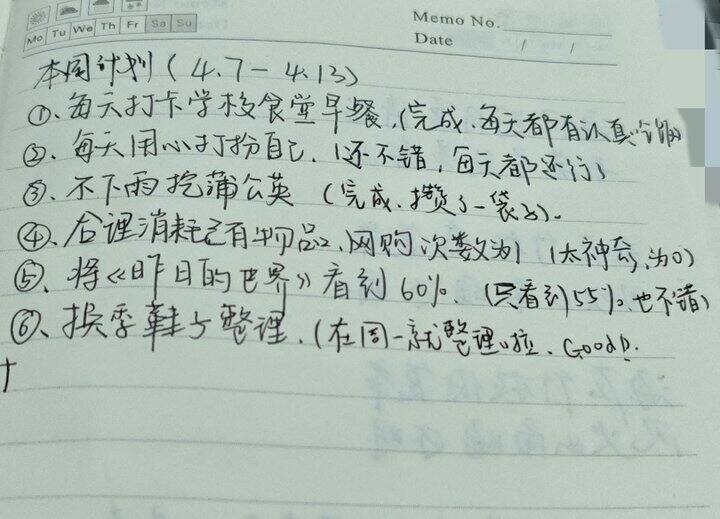 Memo No.
Mo Tu We Th Fr Sa Su
Date / /
本周计划(4.7-4.13)
①、每天打卡学校食堂早餐.(完成.每天都有认真
②、每天用心打扮自己.(还不错,每天都还行)
③、不下雨挖蒲公英 (完成.攒了一袋了).
④、合理消耗已有物品、网购次数为1 (太神奇,为0)
⑤、将《昨日的世界》看到60%. (只看到55%.也不错)
⑥、换季鞋子整理.(在周一就整理啦、Good!).